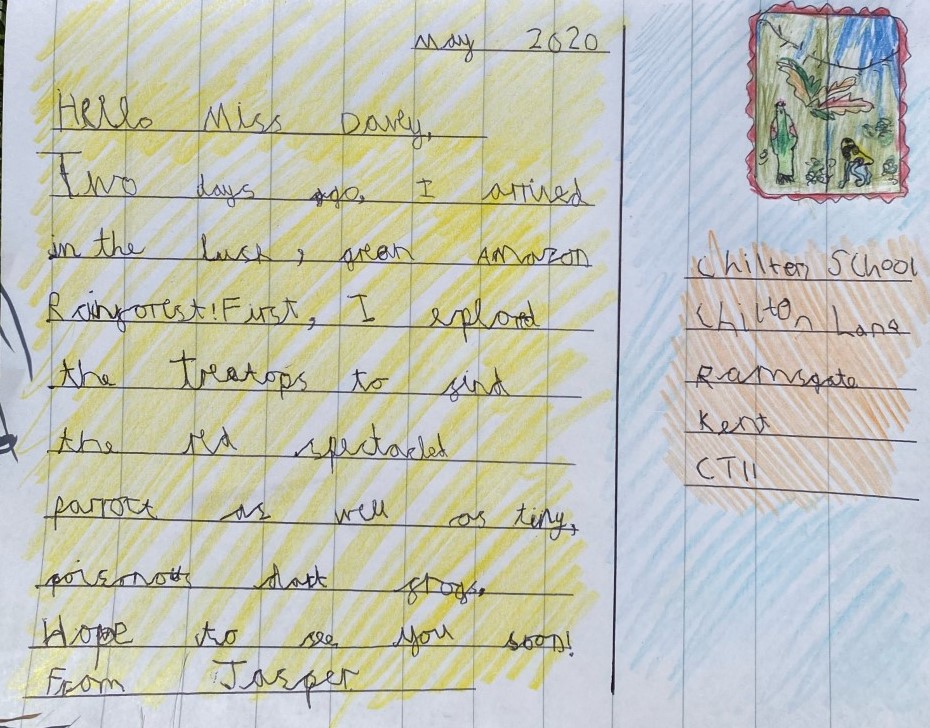 May 2020
Hello Miss Davey,
Two days ago, I arrived
in the lush, grean AMAZON
Rainforest! First, I eplored
the treatops to find
the red spectacled
parrott as well as tiny,
poisonous dart frogs.
Hope to see you soon!
From Jasper
Chilton School
Chilton Lane
Ramsgate
Kent
CT11